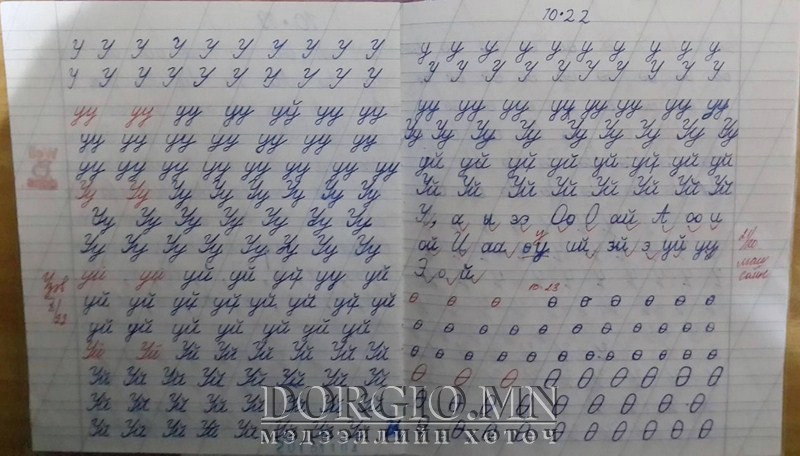 у у у у у у у у у
у у у у у у у у у
уу уу уу уу уй уу уу
уу уу уу уу уу уу уу
уу уу уу уу уу уу уу уу
Уу Уу Уу Уу Уу Уу Уу Уу
Уу Уу Уу Уу Уу Уу
Уу Уу Уу Уу Уу Уу Уу Уу
уй уй уй уй уй уу уй
уй уй уй уй уй уй уй уй
уй уй уй уй уй уй уй
Уй Уй Уй Уй Уй Уй Уй Уй
Уй Уй Уй Уй Уй Уй Уй Уй
Уй Уй Уй Уй Уй Уй Уй Уй
Уй Уй Уй Уй Уй Уй Уй
10·22
у у у у у у у у у у
У У У У У У У У У
уу уу уу уу уу уу уу уу
Уу Уу Уу Уу Уу Уу Уу Уу Уу
уй уй уй уй уй уй уй уй
Уй Уй Уй Уй Уй Уй Уй Уй
У, а ы ээ Оо О ай А оо и
ой Ц аа оу ий эй э уй уу
Э о й
10·23
ө ө ө ө ө ө ө ө ө
ө ө ө ө ө ө ө ө ө ө
ө ө ө ө ө ө ө ө ө ө ө
Ө Ө Ө Ө Ө Ө Ө Ө Ө
Ө Ө Ө Ө Ө Ө Ө Ө
Ө Ө Ө Ө Ө Ө Ө Ө Ө
маш сайн
DORGIO.MN
МЭДЭЭЛЛИЙН ХӨТӨЧ